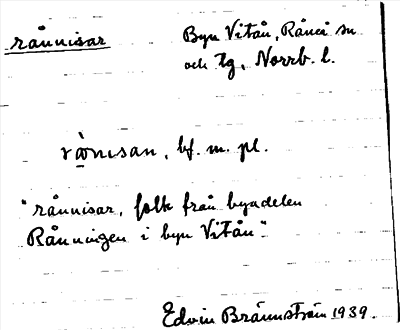 rånnisar
Byn Vitån, Råneå sn
och tg, Norrb. l.
rånisan, bf. m. pl.
"rånnisar, folk från byadelen
Rånningen i byn Vitån".
Edvin Brännström 1939.